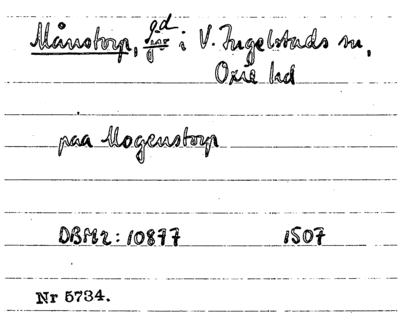 Månstorp, gd i V. Ingelstads sn,
Oxie hd
paa Mogenstorp
DBM2: 10877 1507
Nr 5734.